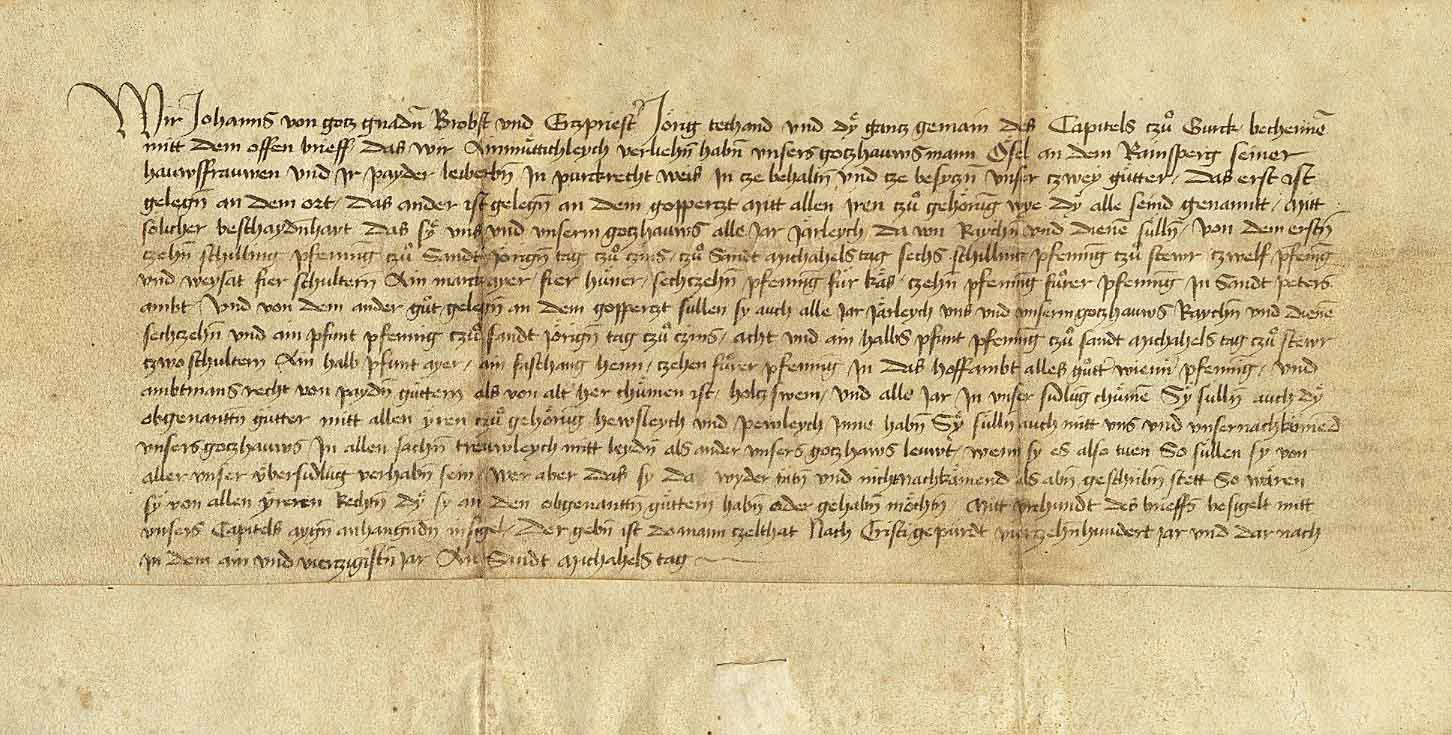 Wir Johanns von gotz gnadn̄ Brobst vnd Ertzpriest' Jörig techand vnd dÿ gantz gemain des Capitels czů Gurck bechennē
mitt dem offen brieff / das wir Ainmüttichleych verliehn̄ habn̄ vnsers gotzhawsmann Ösel an dem Rainsperg seiner
hawsffrawen vnd jr payder leiberbn̄ In purckrecht weis In cze behaltn̄ vnd cze besyczn̄ vnser czwey gütter / das erst ist
gelegn̄ an dem ort / das ander ist gelegn̄ an dem goppertzt Mitt allen jren czů gehörūg wye dÿ alle seind genannt / Mitt
sölicher beschaydnhart das sÿ vns vnd vnserm gotzhawss alle jar järleych da von Raychn̄ vnd dienē sülln̄ / von dem erstn̄
czehn̄ schilling pfenning czů Sandt jörign̄ tag czů czins / czů Sandt Michahels tag sechs schilling pfenning czů stewr czwelf pfenīg
vnd weysat fier schultern Ain marck ayer / fier hüner / sechczehn̄ pfenning für käs / czehn̄ pfenning fürer pfenning in Sandt peters
ambt / Vnd von dem ander gůt gelegn̄ an dem goppertzt süllen sy auch alle jar järleych vns vnd vnserm gotzhawss Raychn̄ vnd dienē
sechczehn̄ vnd ain pfunt pfenning czů sandt jörign̄ tag czů czins / acht vnd ain halbs pfunt pfenning czů sandt Michahels tag czů stewr
czwo schultern Ain halb pfunt ayer / ain faschang henn / czehen fürer pfenning in das hoffambt alles gůtt wienn' pfenning / vnd
ambtmans recht von paydn̄ güttern als von alt her chümen ist / holtz swein / vnd alle jar in vnser sidlūg chümē Sÿ sülln̄ auch dÿ
obgenanttn̄ gütter mitt allen ÿren czů gehörūg hewsleych vnd pewleych jnne habn̄ Sÿ sülln̄ auch mitt vns vnd vnsernachkömed
vnsers gotzhawss In allen sachn̄ trewleych mitt leydn̄ als ander vnsers gotzhaws lewt / wenn sy es also tuen So süllen sy von
aller vnser übersidlūg verhabn̄ sein / wer aber das sy da wyder tätn̄ vnd nicht nachkämend als abn̄ geschribn̄ stett So wären
sÿ von allen ÿreren Rechtn̄ dÿ sy an den obgenanttn̄ güttern habn̄ oder gehabn̄ möchtn̄ Mitt vrchundt des brieffs besigelt mitt
vnsers Capitels aygn̄ anhangundn̄ insigel / Der gebn̄ ist do mann czelthat Nach Cristi gepürdt vierczehnhundert jar vnd darnach
in dem ain vnd vierczigistn̄ jar An Sandt Michahels tag